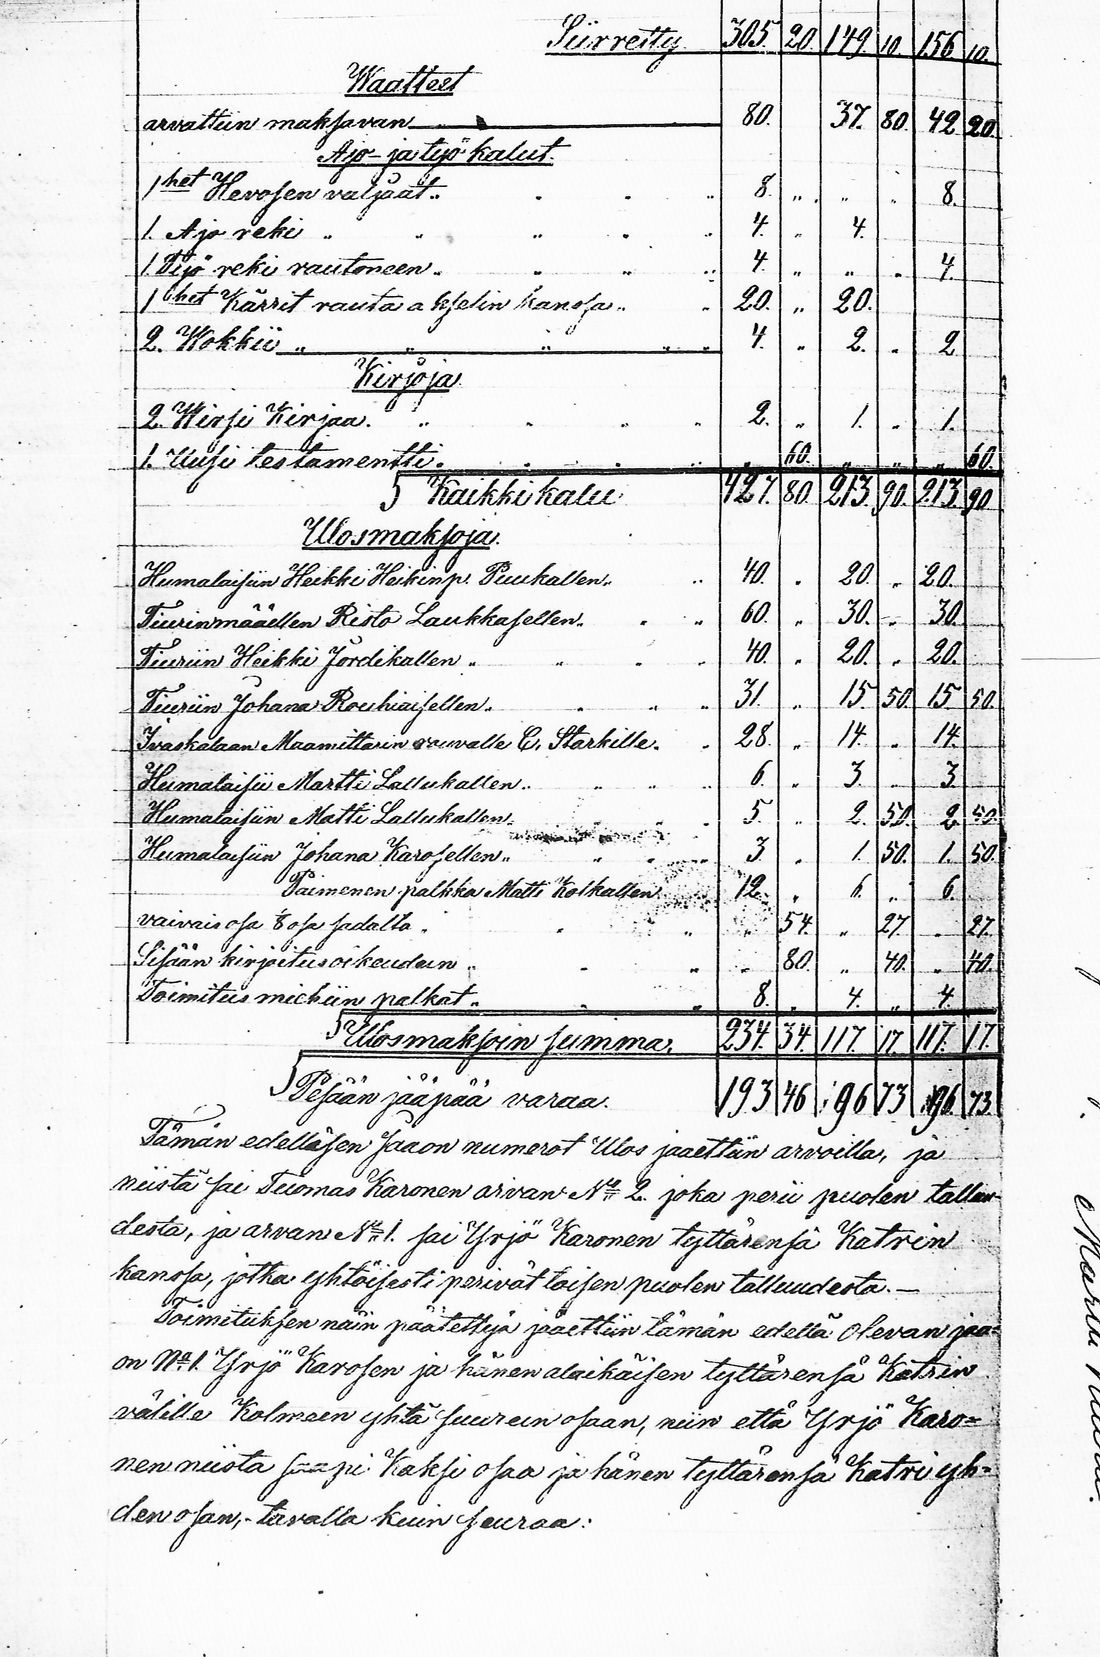 Siirretty 305. 20. 149. 10. 156 10.
Waatteet
arvattiin maksavan 80. 37. 80. 42 20.
Ajo- ja työ kalut.
1het Hevosen valjaat „ 8. „ „ „ 8.
1. Ajo reki „ „ „ „ „ 4. „ 4.
1. Työ reki rautoneen „ „ „ „ 4. „ „ „ 4.
1het Kärrit rauta akselin kanssa „ „ 20. „ 20.
2. Wokkii „ „ „ „ „ 4. „ 2. „ 2
Kirjoja
2. Wirsi Kirjaa. „ „ „ „ 2. „ 1. „ 1.
1. Uusi testamentti. „ „ „ „ 60. „ „ „ 60.
Kaikki kalu 427. 80. 213. 90. 213. 90
Ulosmaksoja.
Humalaisiin Heikki Heikinp. Puukallen „ „ 40. „ 20. „ 20.
Tiurinmäällen Risto Laukkasellen „ „ „ 60. „ 30. „ 30.
Tiuriin Heikki Jördikallen „ „ „ „ 40. „ 20. „ 20.
Tiuriin Johana Rouhiaisellen „ „ „ „ 31. „ 15 50. 15 50.
Ivaskalaan Maamittarin rouvalle C. Starkille. „ 28. „ 14. „ 14.
Humalaisii Martti Lallukallen „ „ „ „ 6. „ 3. „ 3.
Humalaisiin Matti Lallukallen „ „ 5. „ 2. 50. 2. 50.
Humalaisiin Johana Karosellen „ „ „ „ 3. „ 1. 50. 1. 50.
Paimenen palkka Matti Kolkallen 12. „ 6. „ 6.
vaivais osa 8 osa sadalta „ „ „ „ „ 54. „ 27 „ 27.
Sisään kirjoitus oikeudeun „ „ „ „ 80. „ 40. „ 40.
Toimitus miehiin palkat „ „ „ 8. „ 4. „ 4.
Ulosmaksoin summa. 234. 34. 117. 17. 117. 17.
Pesään jääpää varaa. 193 46 96 73 96. 73.
Tämän edelläsen jaaon numerot Ulos jaaettiin arvoilla, ja
niistä sai Tuomas Karonen arvan No 2. joka perii puolen talluu-
desta, ja arvan No 1. sai Yrjö Karonen tyttärensä Katrin
kanssa, jotka yhtöisesti perivät toisen puolen talluudesta. —
Toimituksen näin päätettyä jaettiin tämän edellä olevan jaa=
on No 1. Yrjö Karosen ja hänen alaikäisen tyttärensä Katrin
välille Kolmeen yhtä suureen osaan, niin että Yrjö Karo=
nen niistä saapi Kaksi osaa ja hänen tyttärensä Katri yh=
den osan, - tavalla kuin seuraa: